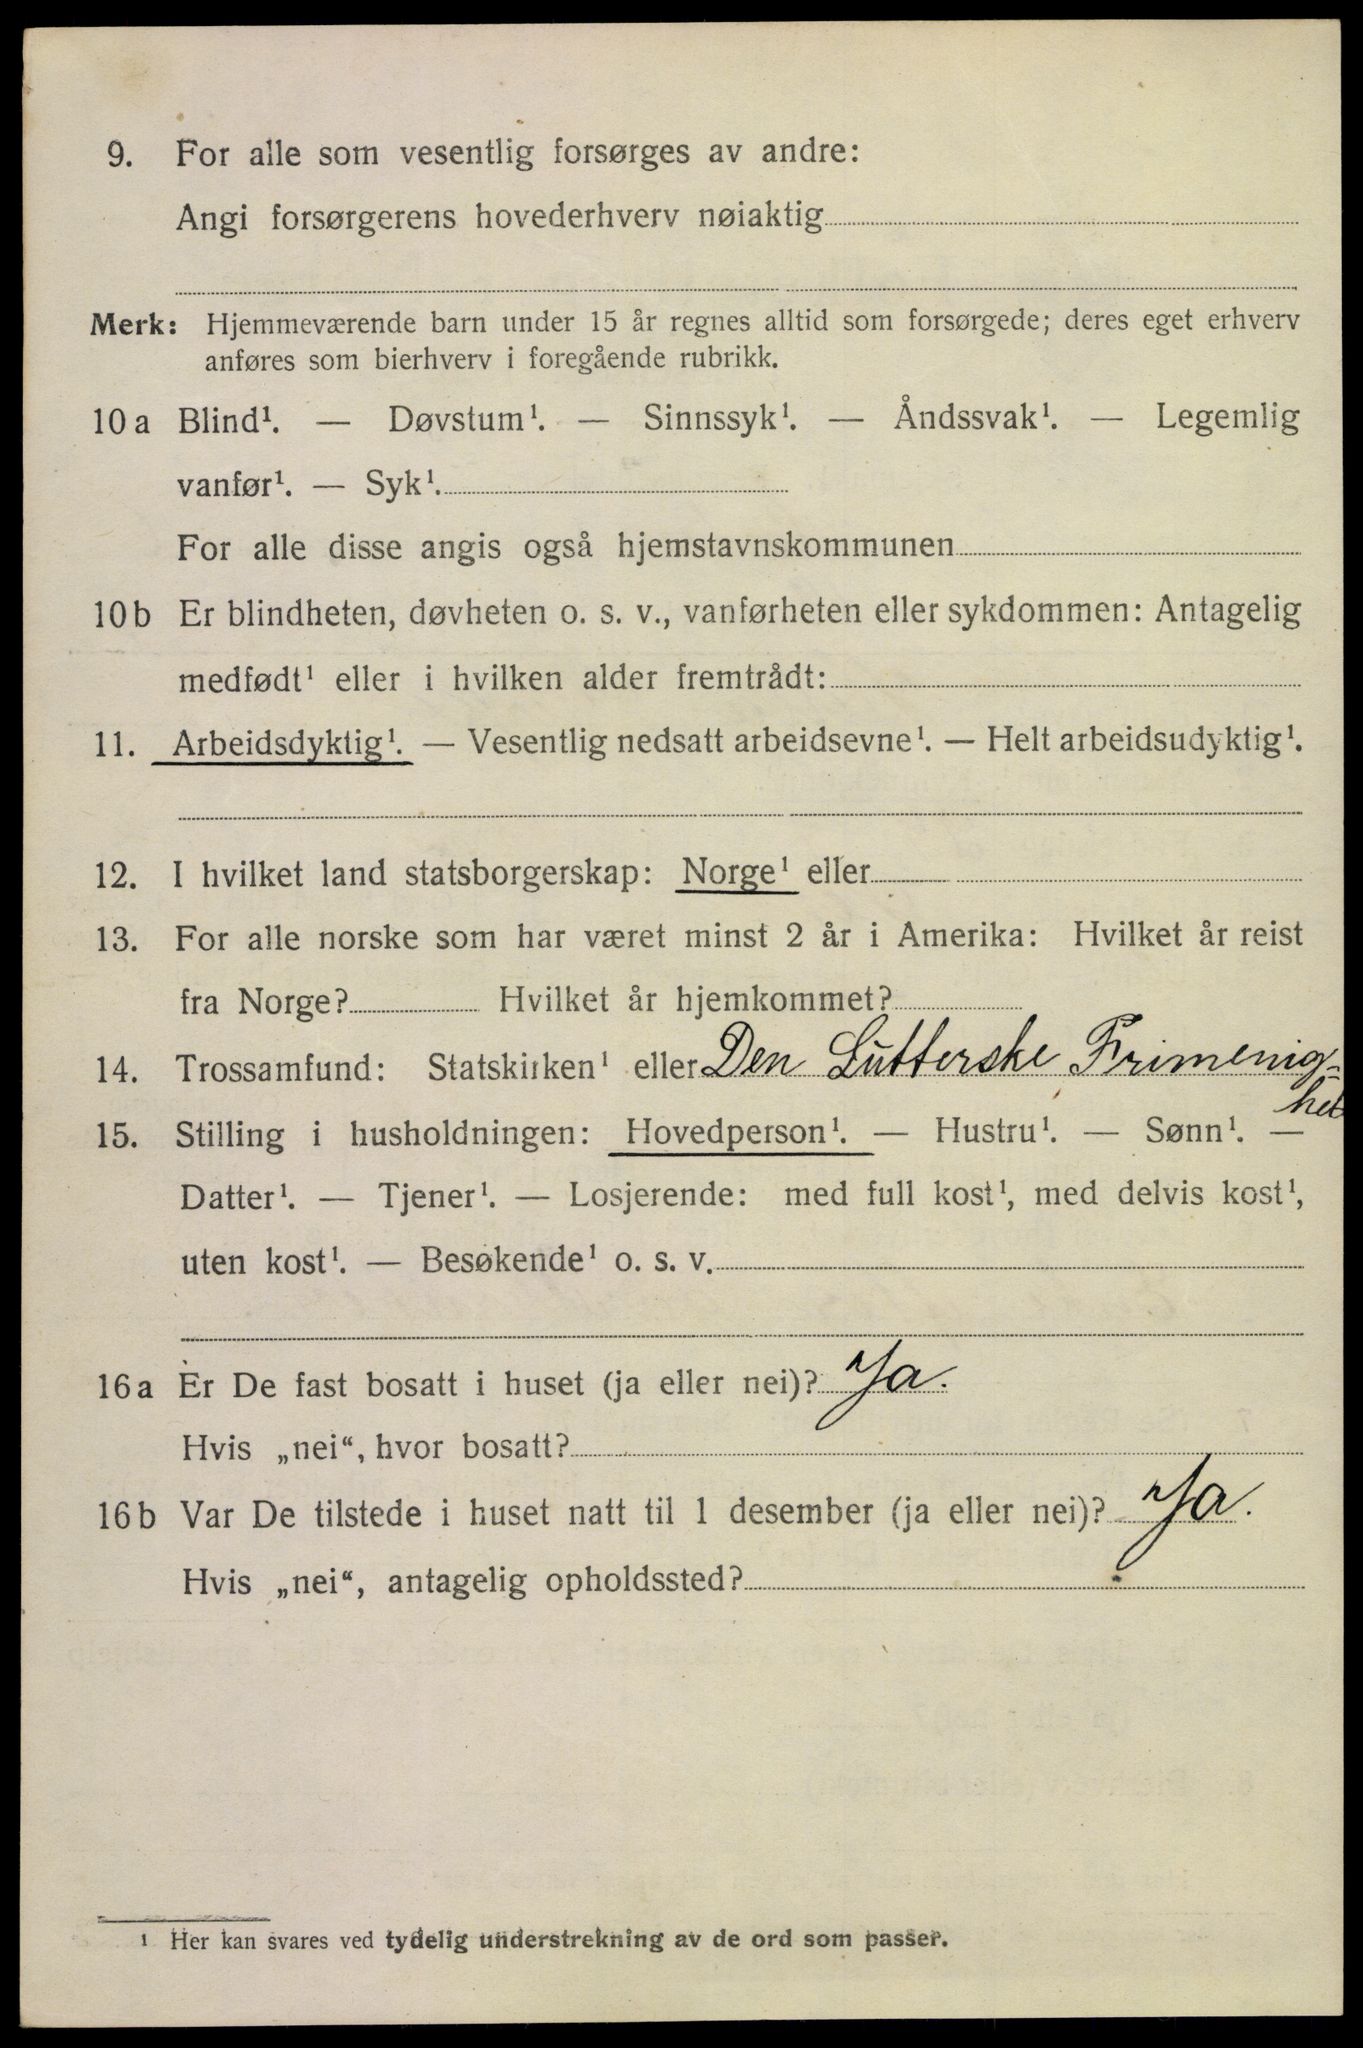 9. For alle som vesentlig forsørges av andre:
Angi forsørgerens hovederhverv nøiaktig
Merk: Hjemmeværende barn under 15 år regnes alltid som forsørgede; deres eget erhverv
anføres som bierhverv i foregående rubrikk.
10 a Blind¹. — Døvstum¹. — Sinnssyk¹. — Åndssvak¹. — Legemlig
vanfør¹. — Syk¹.
For alle disse angis også hjemstavnskommunen
10 b Er blindheten, døvheten o. s. v., vanførheten eller sykdommen: Antagelig
medfødt¹ eller i hvilken alder fremtrådt:
11. Arbeidsdyktig¹. — Vesentlig nedsatt arbeidsevne¹. — Helt arbeidsudyktig¹.
12. I hvilket land statsborgerskap: Norge¹ eller
13. For alle norske som har været minst 2 år i Amerika: Hvilket år reist
fra Norge? Hvilket år hjemkommet?
14. Trossamfund: Statskirken¹ eller Den Lutterske Frimenig=
het
15. Stilling i husholdningen: Hovedperson¹. — Hustru¹. — Sønn¹. —
Datter¹. — Tjener¹. — Losjerende: med full kost¹, med delvis kost¹,
uten kost¹. — Besøkende¹ o. s. v.
16 a Er De fast bosatt i huset (ja eller nei)? Ja.
Hvis „nei“, hvor bosatt?
16 b Var De tilstede i huset natt til 1 desember (ja eller nei)? Ja.
Hvis „nei“, antagelig opholdssted?
¹ Her kan svares ved tydelig understrekning av de ord som passer.